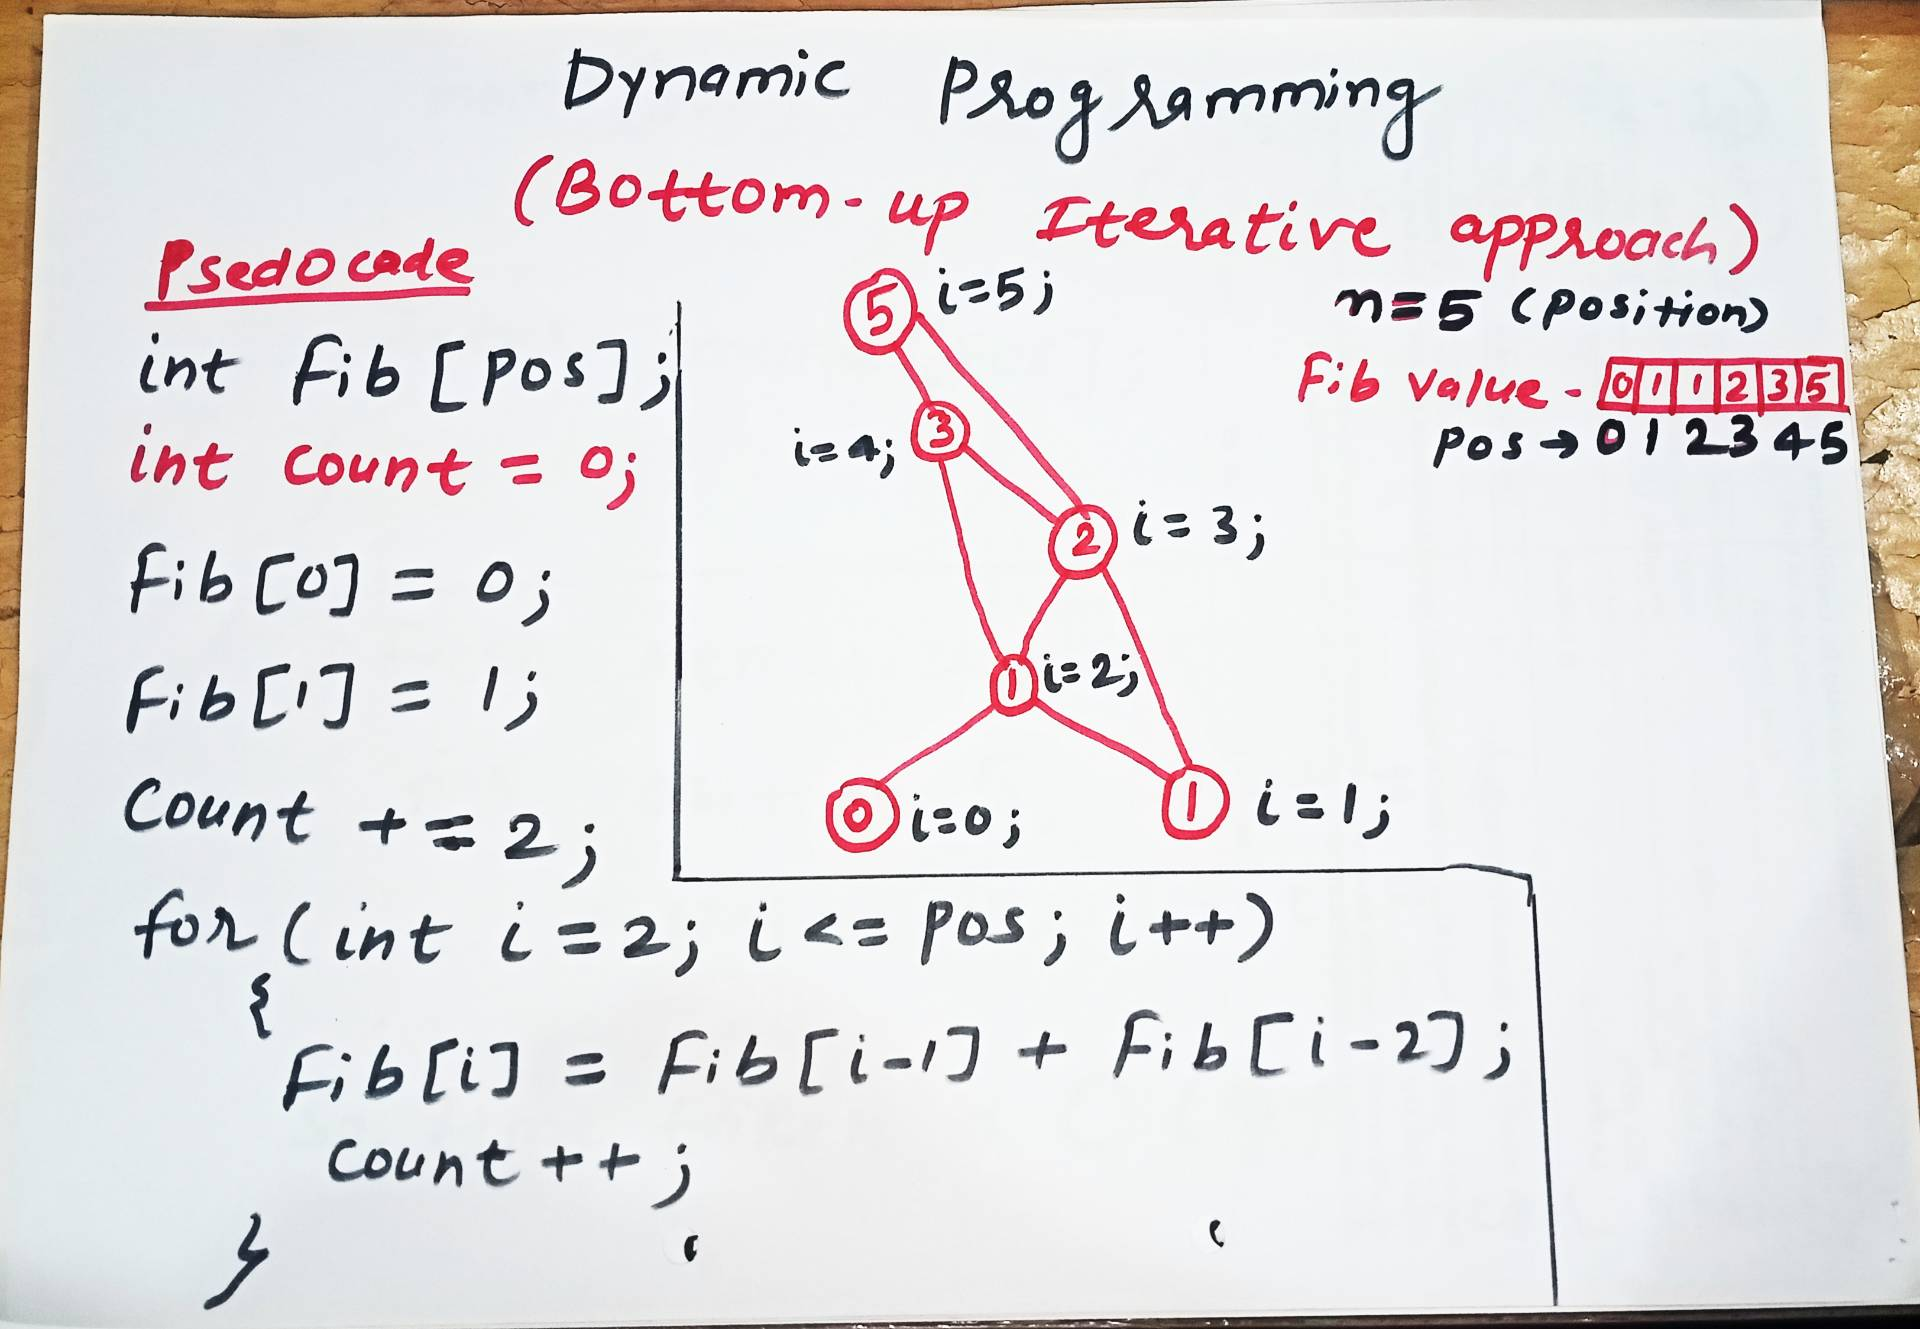 Dynamic Programming
(Bottom-up Iterative approach)
Psedocode
int Fib[pos];
int count = 0;
Fib[0] = 0;
Fib[1] = 1;
Count += 2;
for (int i=2; i<= pos; i++)
{
Fib[i] = Fib[i-1] + Fib[i-2];
count++;
}
5 i=5;
i=4; 3
2 i=3;
1 i=2;
0 i=0;
1 i=1;
n=5 (position)
Fib value - 0 1 1 2 3 5
pos → 0 1 2 3 4 5